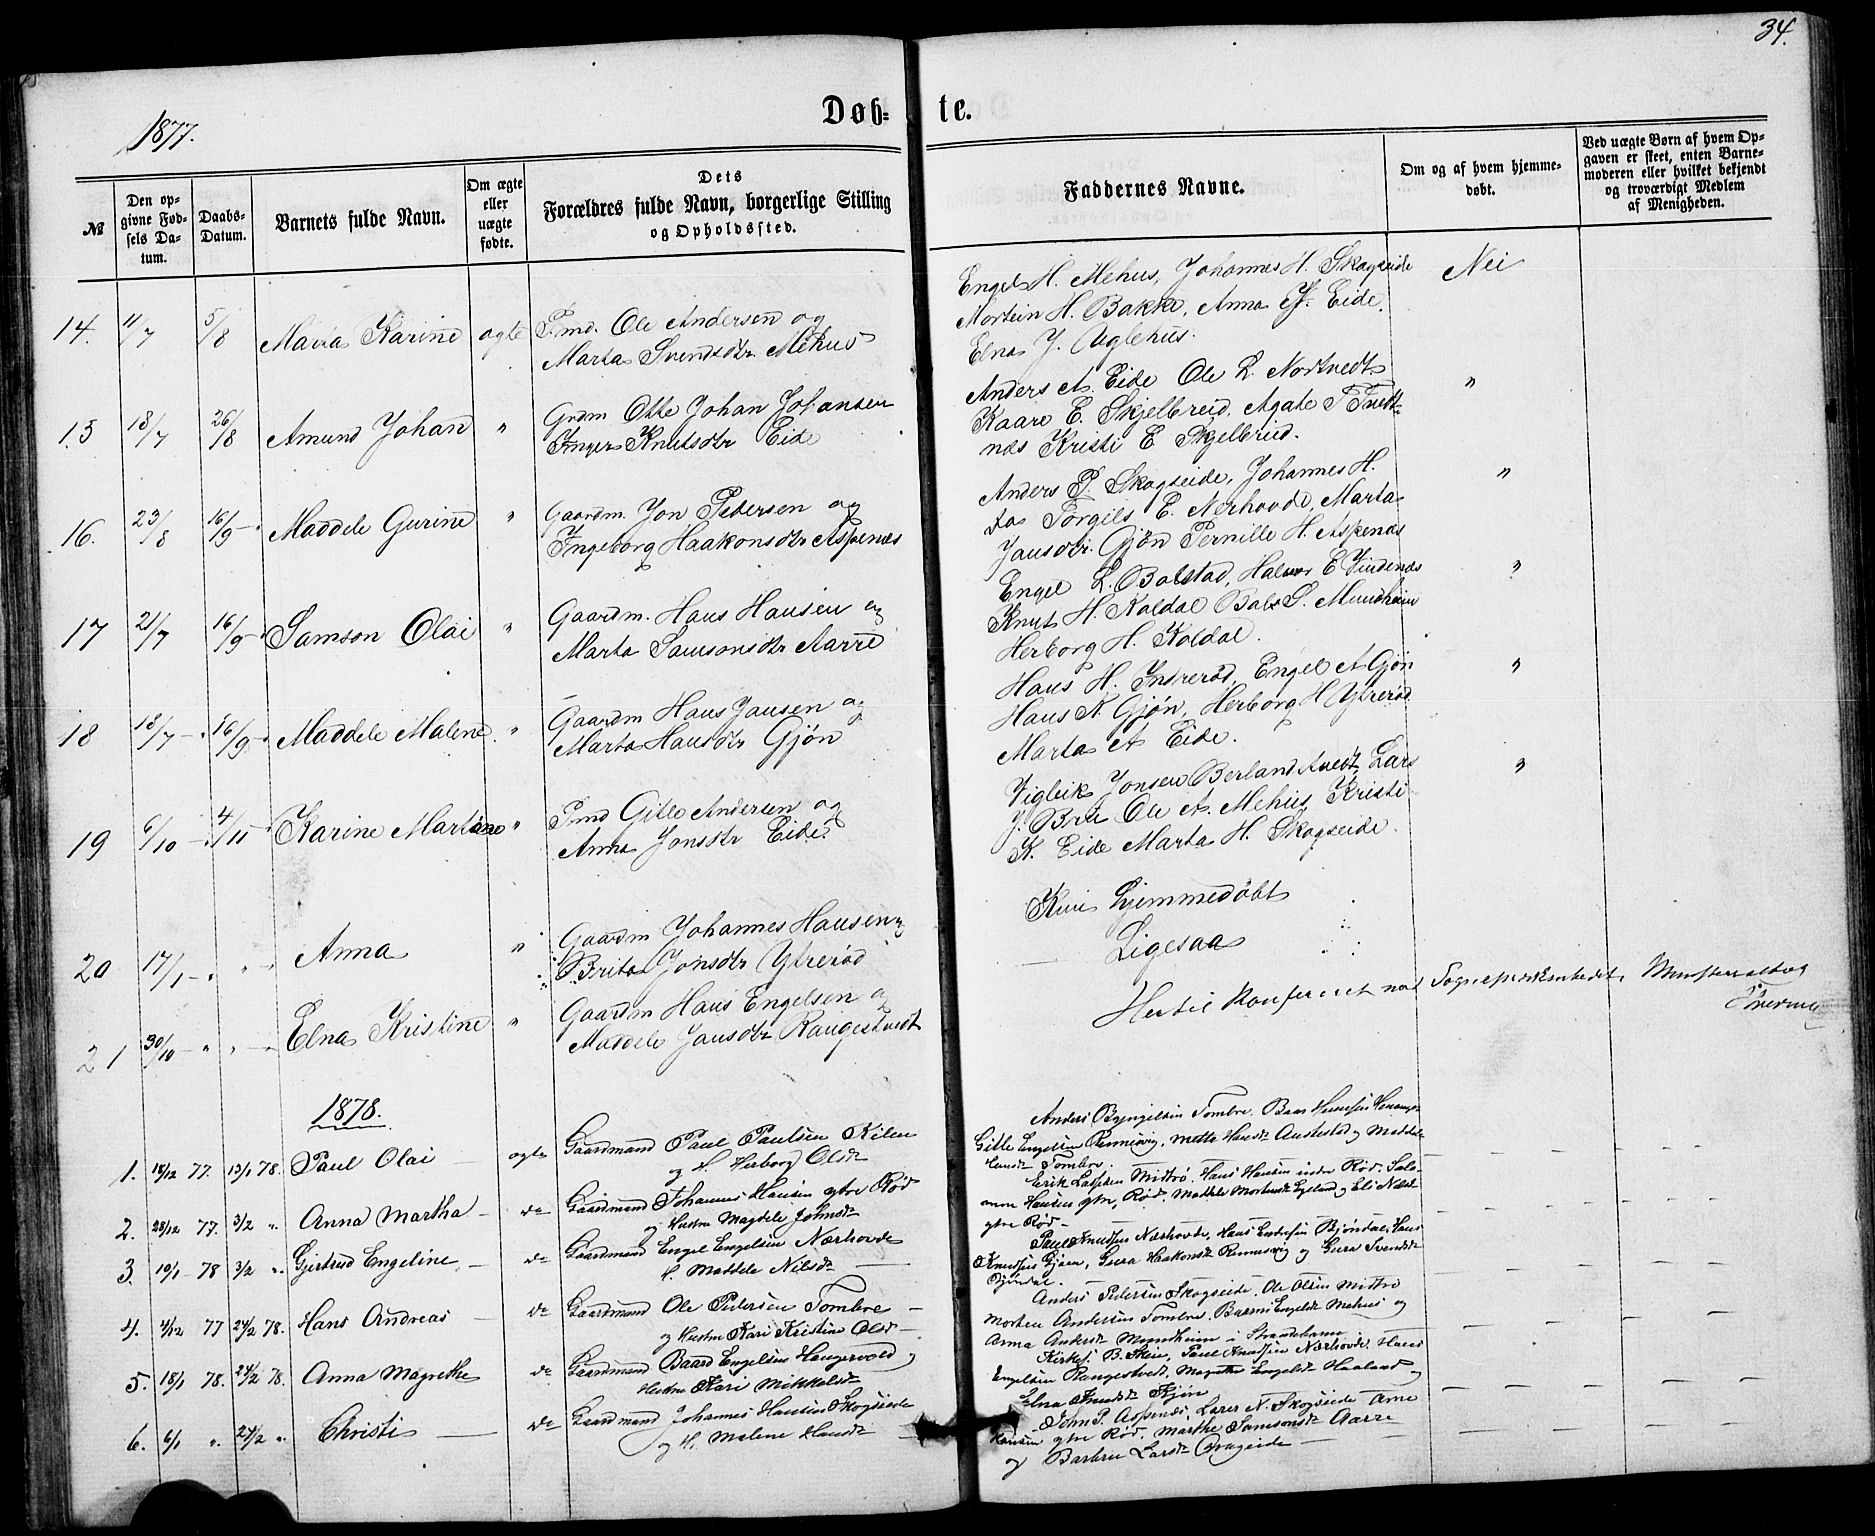 34.
1877.
Døb- te.
№
Den op-
givne Fød-
sels Da-
tum.
Daabs-
Datum.
Barnets fulde Navn.
Om ægte
eller
uægte
fødte.
Dets
Forældres fulde Navn, borgerlige Stilling
og Opholdssted.
Faddernes Navne.
Om og af hvem hjemme-
døbt.
Ved uægte Børn af hvem Op-
gaven er skeet, enten Barne-
moderen eller hvilket bekjendt
og troværdigt Medlem
af Menigheden.
14. 11/7 5/8 Maria Karine ægte Pmd. Ole Andersen og
Marta Svendsdtr Mehus
Engel H. Mehus, Johannes H. Skogseide Nei
Mortein H. Bakke, Anna Eide,
Elna J. Uglehus.
15 18/7 26/8 Amund Johan " Grdm Otte Johan Johansen
Inger Knutsdtr Eide
Anders A. Eide Ole L. Nortvedt "
Kaare E. Skjelbreid, Agate T Tvedt-
næs Kristi E Skjelbreid.
16. 23/8 16/9 Maddele Gurine " Gaardm. Jon Pedersen og
Ingeborg Haakonsdtr Aspenæs
Anders P. Skogseide, Johannes H. "
do Torgils E. Nerhovde, Marta
Jansdtr. Gjøn Pernille H. Aspenæs
17 2/7 16/9 Samson Olai " Gaardm. Hans Hansen og
Marta Samsonsdtr Aarre
Engel L. Bolstad, Halvor E Vindenæs "
Knut H. Koldal Bals S. Mundheim
Herborg H. Koldal.
18 18/7 16/9 Maddele Malene " Gaardm Hans Jansen og
Marta Hansdtr Gjøn
Hans H. Indrerød, Engel A Gjøn "
Hans N. Gjøn, Herborg H Ytrerød
Marta A Eide.
19 6/10 4/11 Karine Martine " Pmd Gitle Andersen og
Anna Jonsdtr Eide
Vigleik Jonsen Berland Lars "
J. Bru Ole A. Mehus, Kristi
K. Eide Marta H. Skogseide.
20 17/1 " " Anna " Gaardm Johannes Hansen og
Brita Jonsdtr Ytrerød
Kun hjemmedøbt
21 30/10 " " Elna Kristine " Gaardm Hans Engelsen og
Maddele Jansdtr Rangestvedt
Ligesaa
Hertil konfereret med Sogneprestembedets Ministerialbog
1878.
1. 18/12 77. 13/1 78. Paul Olai ægte Gaardmand Paul Paulsen Kilen
og H. Herborg Olsdtr
Anders Tombre. Baar
Gitle Engelsen Rennesvig, Mette Hansdtr Austestad og Maddele
Hansdtr Tombre.
2. 28/12 77. 3/2 " Anna Martha do Gaardmand Johannes Hansen ytre Rød
og Hustru Magdele Johnsdtr
Erik Larssen Midtrø. Hans Hansen indre Rød. Salo-
mon Hansen ytre Rød. Maddele Mortensdtr og Eli Nilsdtr
ytre Rød
3. 10/1 78 3/2 " Gjertrud Engeline do Gaardmand Engel Engelsen Nærhovde
H. Maddele Nilsdtr
Paul Knudsen Nærhovde, Hans Bjøndal, Hans
Knudsen Gjøen, Gura Haakonsdtr Rennesvig og Gura Svendsdtr
Bjøndal.
4. 4/12 77 24/2 78. Hans Andreas do Gaardmand Ole Pedersen Tombre
og Hustru Kari Kristine Olsdtr
Anders Pedersen Skogseide, Ole Olsen Midtrø
Morten Andersen Tombre. Engelsdtr Mehus og
Anna Mundheim i Strandebarm
5. 18/1 78. 24/2 78. Anna Magrethe do Gaardmand Baard Engelsen Haugervold og
Hustru Kari Mikkelsdtr
B. Skeie, Paul Knudsen Nærhovde. Hans
Engelsen Rangestvedt, Magrethe Engelsdtr Haaland og
Elna Knudsdtr Gjøn
6. 6/1 " 24/2 " Christi do Gaardmand Johannes Hansen Skogseide
og H. Malene Hansdtr
John P. Aspenæs, Lars N. Skogseide Arne
Hansen ytre Rød. Marthe Samsonsdtr Aarre
og Barbru Larsdtr Skogseide